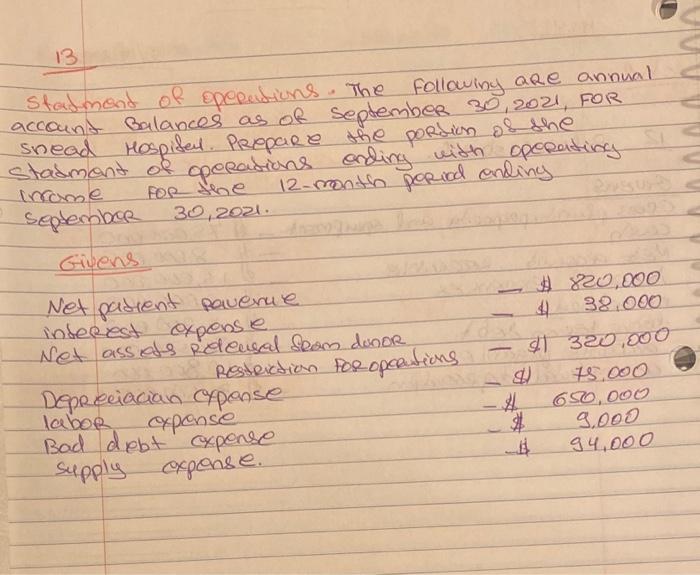 13
Statment of operations. The Following are annual
account Balances as of September 30, 2021, FOR
snead Hospital. Prepare the portion of the
statment of operations ending with operating
income FOR the 12-month period ending
September 30, 2021.
Givens
Net patient Revenue — $ 820,000
interest expense — $ 38,000
Net assets Released from donor
Restriction For operations — $ 320,000
Depreciacian expense — $ 75,000
labor expense — $ 650,000
Bad debt expense — $ 9,000
Supply expense. — $ 94,000